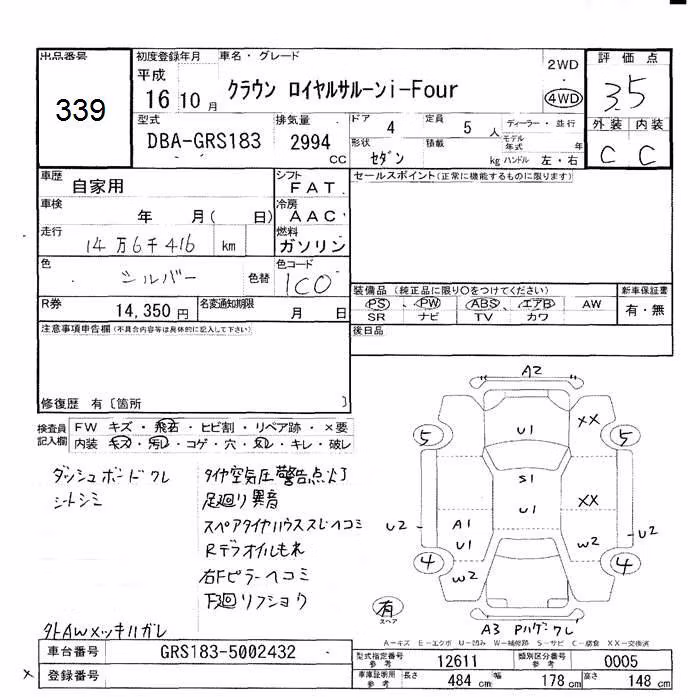 出品番号
339
初度登録年月
平成
16 10 月
車名・グレード
クラウン ロイヤルサルーンi-Four
2WD
4WD
評価点
3.5
型式
DBA-GRS183
排気量
2994
CC
ドア 4
定員 5 人
ディーラー・並行
モデル年式 年
形状 セダン
積載 kg
ハンドル 左・右
外装 内装
C C
車歴 自家用
シフト FAT
セールスポイント(正常に機能するものに限ります)
車検 年 月( 日)
冷房 AAC
走行 14万6千416 km
燃料 ガソリン
色 シルバー 色替
色コード 1C0
装備品(純正品に限り○をつけてください)
新車保証書
PS PW ABS エアB AW
有・無
SR ナビ TV カワ
R券 14,350 円
名変通知期限 月 日
後日品
注意事項申告欄(不具合内容等は具体的に記入して下さい)
修復歴 有〔箇所 〕
検査員記入欄
FW キズ・飛石・ヒビ割・リペア跡・×要
内装 キズ・汚レ・コゲ・穴・スレ・キレ・破レ
ダッシュボードワレ
シートシミ
外AWメッキハガレ
タイヤ空気圧警告点灯
足廻り異音
スペアタイヤハウススレヘコミ
Rデフオイルもれ
右Fピラーヘコミ
下廻リフショウ
A2
U1
XX
5
5
S1
U1
XX
U2
A1
U1
W2
U2
4
4
W2
W2
有
スペア
A3 Pハゲ ワレ
A-キズ E-エクボ U-凹み W-補修跡 S-サビ C-腐食 XX-交換済
車台番号 GRS183-5002432
登録番号
×
型式指定番号 参考 12611
類別区分番号 参考 0005
車庫証明用 参考 長さ 484 cm 幅 178 cm 高さ 148 cm